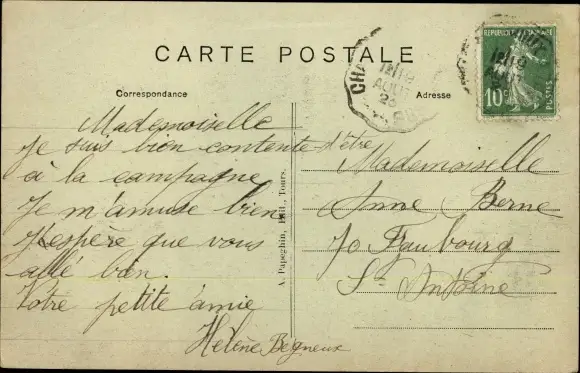 CARTE POSTALE
Correspondance
Adresse
REPUBLIQUE FRANÇAISE
10c
POSTES
CHA
12/18
AOUT
23
12/18
AOUT
Mademoiselle
Je suis bien contente d'être
à la campagne
Je m'amuse bien
J'espère que vous
allé bien.
Votre petite amie
Hélène Begneux
A. Papeghin, Edit., Tours.
Mademoiselle
Anne Berne
70 Faubourg
St Antoine